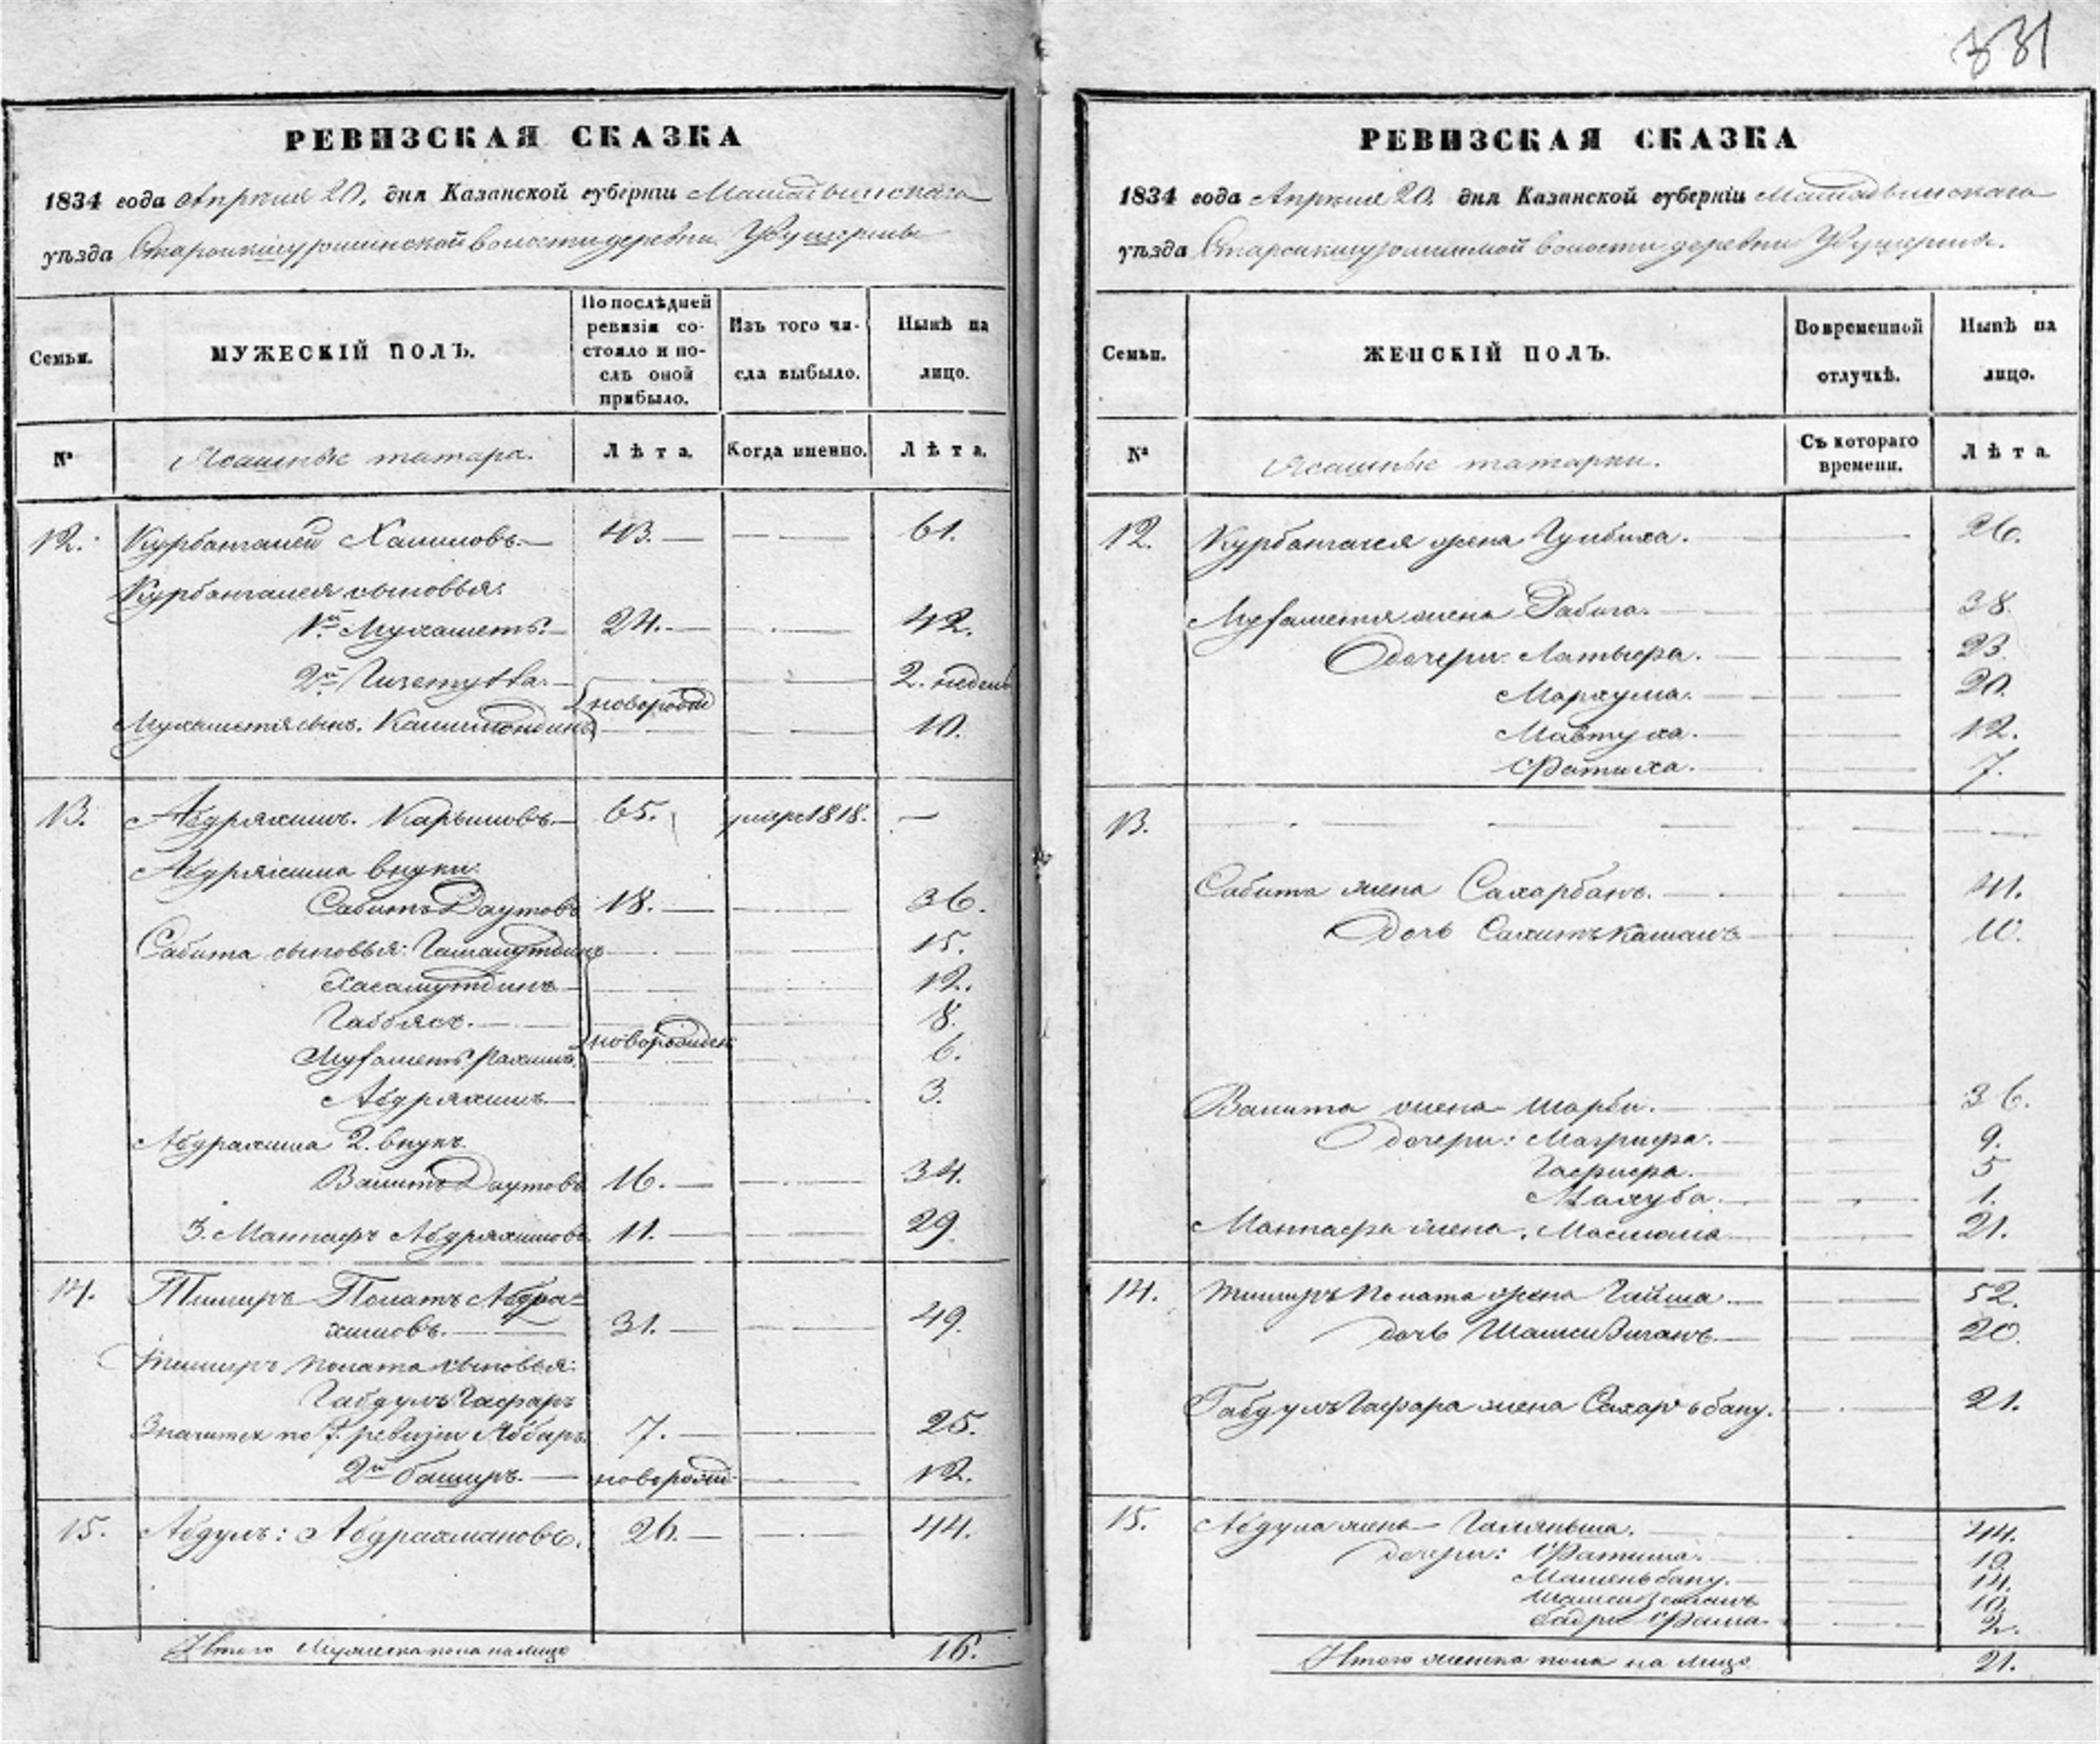 331
РЕВИЗСКАЯ СКАЗКА
1834 года Апреля 20. дня Казанской губерніи Мамадышскаго
уѣзда волости деревни
Семьи.
МУЖЕСКІЙ ПОЛЪ.
По послѣдней ревизіи со-
стояло и по-
слѣ оной
прибыло.
Изъ того чи-
сла выбыло.
Нынѣ на
лицо.
№
Ясашные татара.
Лѣта.
Когда именно.
Лѣта.
12. Курбангалей Халиловъ. 43. 61.
Курбангалея сыновья:
1й Мухаметъ. 24. 42.
2й 2. недель
новорожд
Мухаметя сынъ. 10.
13. Абдряхимъ. Карымовъ. 65. умре 1818.
Абдряхима внуки:
Сабитъ Даутовъ 18. 36.
Сабита сыновья: 15.
Хасамутдинъ 12.
Габбясъ. 8.
новорожден
Мухаметъ Рахимъ. 6.
Абдряхимъ. 3.
Абдрахима 2. внукъ.
Валитъ Даутовъ 16. 34.
3. Маннафъ Абдряхимовъ 11. 29.
14. Тимиръ Полатъ Абдра-
химовъ. 31. 49.
Тимиръ Полата сыновья:
Габдулъ Гафаръ
Значится по 7. ревизіи Аббаръ. 7. 25.
2й Баширъ. новорожд 12.
15. Абдулъ: Абдрахмановъ. 26. 44.
Итого мужеска пола на лицо 16.
РЕВИЗСКАЯ СКАЗКА
1834 года Апреля 20. дня Казанской губерніи Мамадышскаго
уѣзда волости деревни
Семьи.
ЖЕНСКІЙ ПОЛЪ.
Во временной
отлучкѣ.
Нынѣ на
лицо.
№
Ясашные татарки.
Съ котораго
времени.
Лѣта.
12. Курбангалея жена Гулбиха. 26.
Мухаметя жена Рабига. 38.
Дочери: Латыфа. 23
Мархума. 20.
Мавтуха. 12.
Фатиха. 7.
13.
Сабита жена Сахарбанъ. 41.
Дочь Сахипъ Камалъ 10.
Валита жена Шарби. 36.
Дочери: Магрифа. 9.
Гафифа. 5
Махуба. 1.
Маннафа жена. 21.
14. Тимиръ Полата жена Гайша. 52.
дочь 20.
Габдулъ Гафара жена Сахаръ бану. 21.
15. Абдула жена 44.
дочери: Фатима. 19.
14.
10.
Бадри 2.
Итого женска пола на лицо 21.